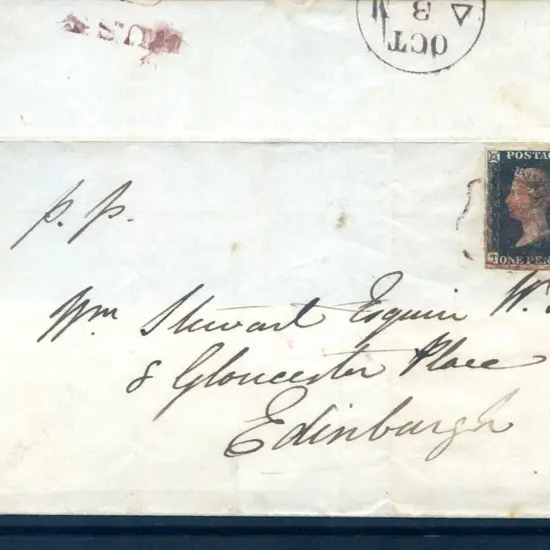 OCT
B N
p. p.
POSTAG
T ONE PEN
Wm Stewart Esquire W.S
8 Gloucester Place
Edinburgh